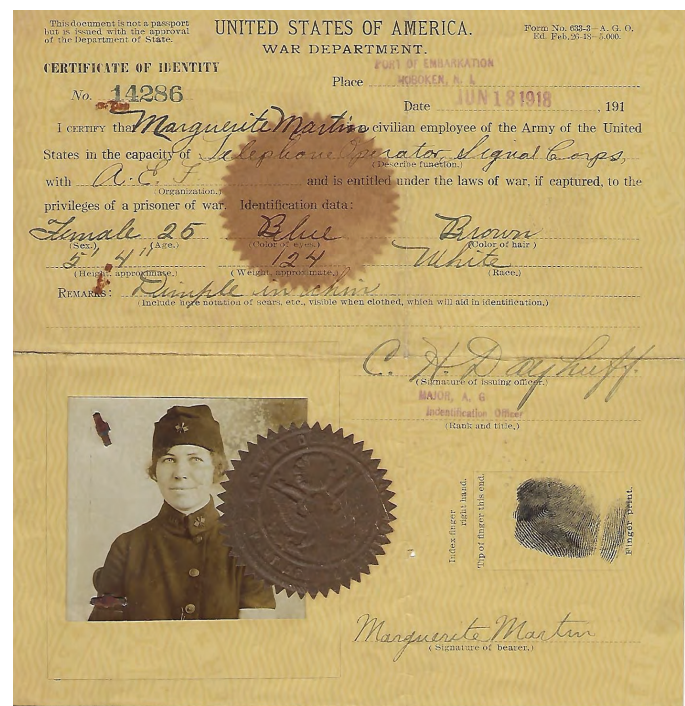 This document is not a passport
but is issued with the approval
of the Department of State.
UNITED STATES OF AMERICA.
WAR DEPARTMENT.
Form No. 633-3—A. G. O.
Ed. Feb. 26-18—5,000.
CERTIFICATE OF IDENTITY
PORT OF EMBARKATION
Place HOBOKEN, N. J.
No. 14286
Date JUN 18 1918, 191
I CERTIFY that Marguerite Martin civilian employee of the Army of the United
States in the capacity of Telephone Operator, Signal Corps,
(Describe function.)
with A. E. F. and is entitled under the laws of war, if captured, to the
(Organization.)
privileges of a prisoner of war. Identification data:
Female 25 Blue Brown
(Sex.) (Age.) (Color of eyes.) (Color of hair)
5' 4" 124 White
(Height, approximate.) (Weight, approximate.) (Race.)
REMARKS: Dimple in chin
(Include here notation of scars, etc., visible when clothed, which will aid in identification.)
C. H. Dayhuff.
(Signature of issuing officer.)
MAJOR, A. G
Indentification Officer
(Rank and title.)
Index finger
right hand.
Tip of finger this end.
Finger print.
Marguerite Martin
(Signature of bearer.)